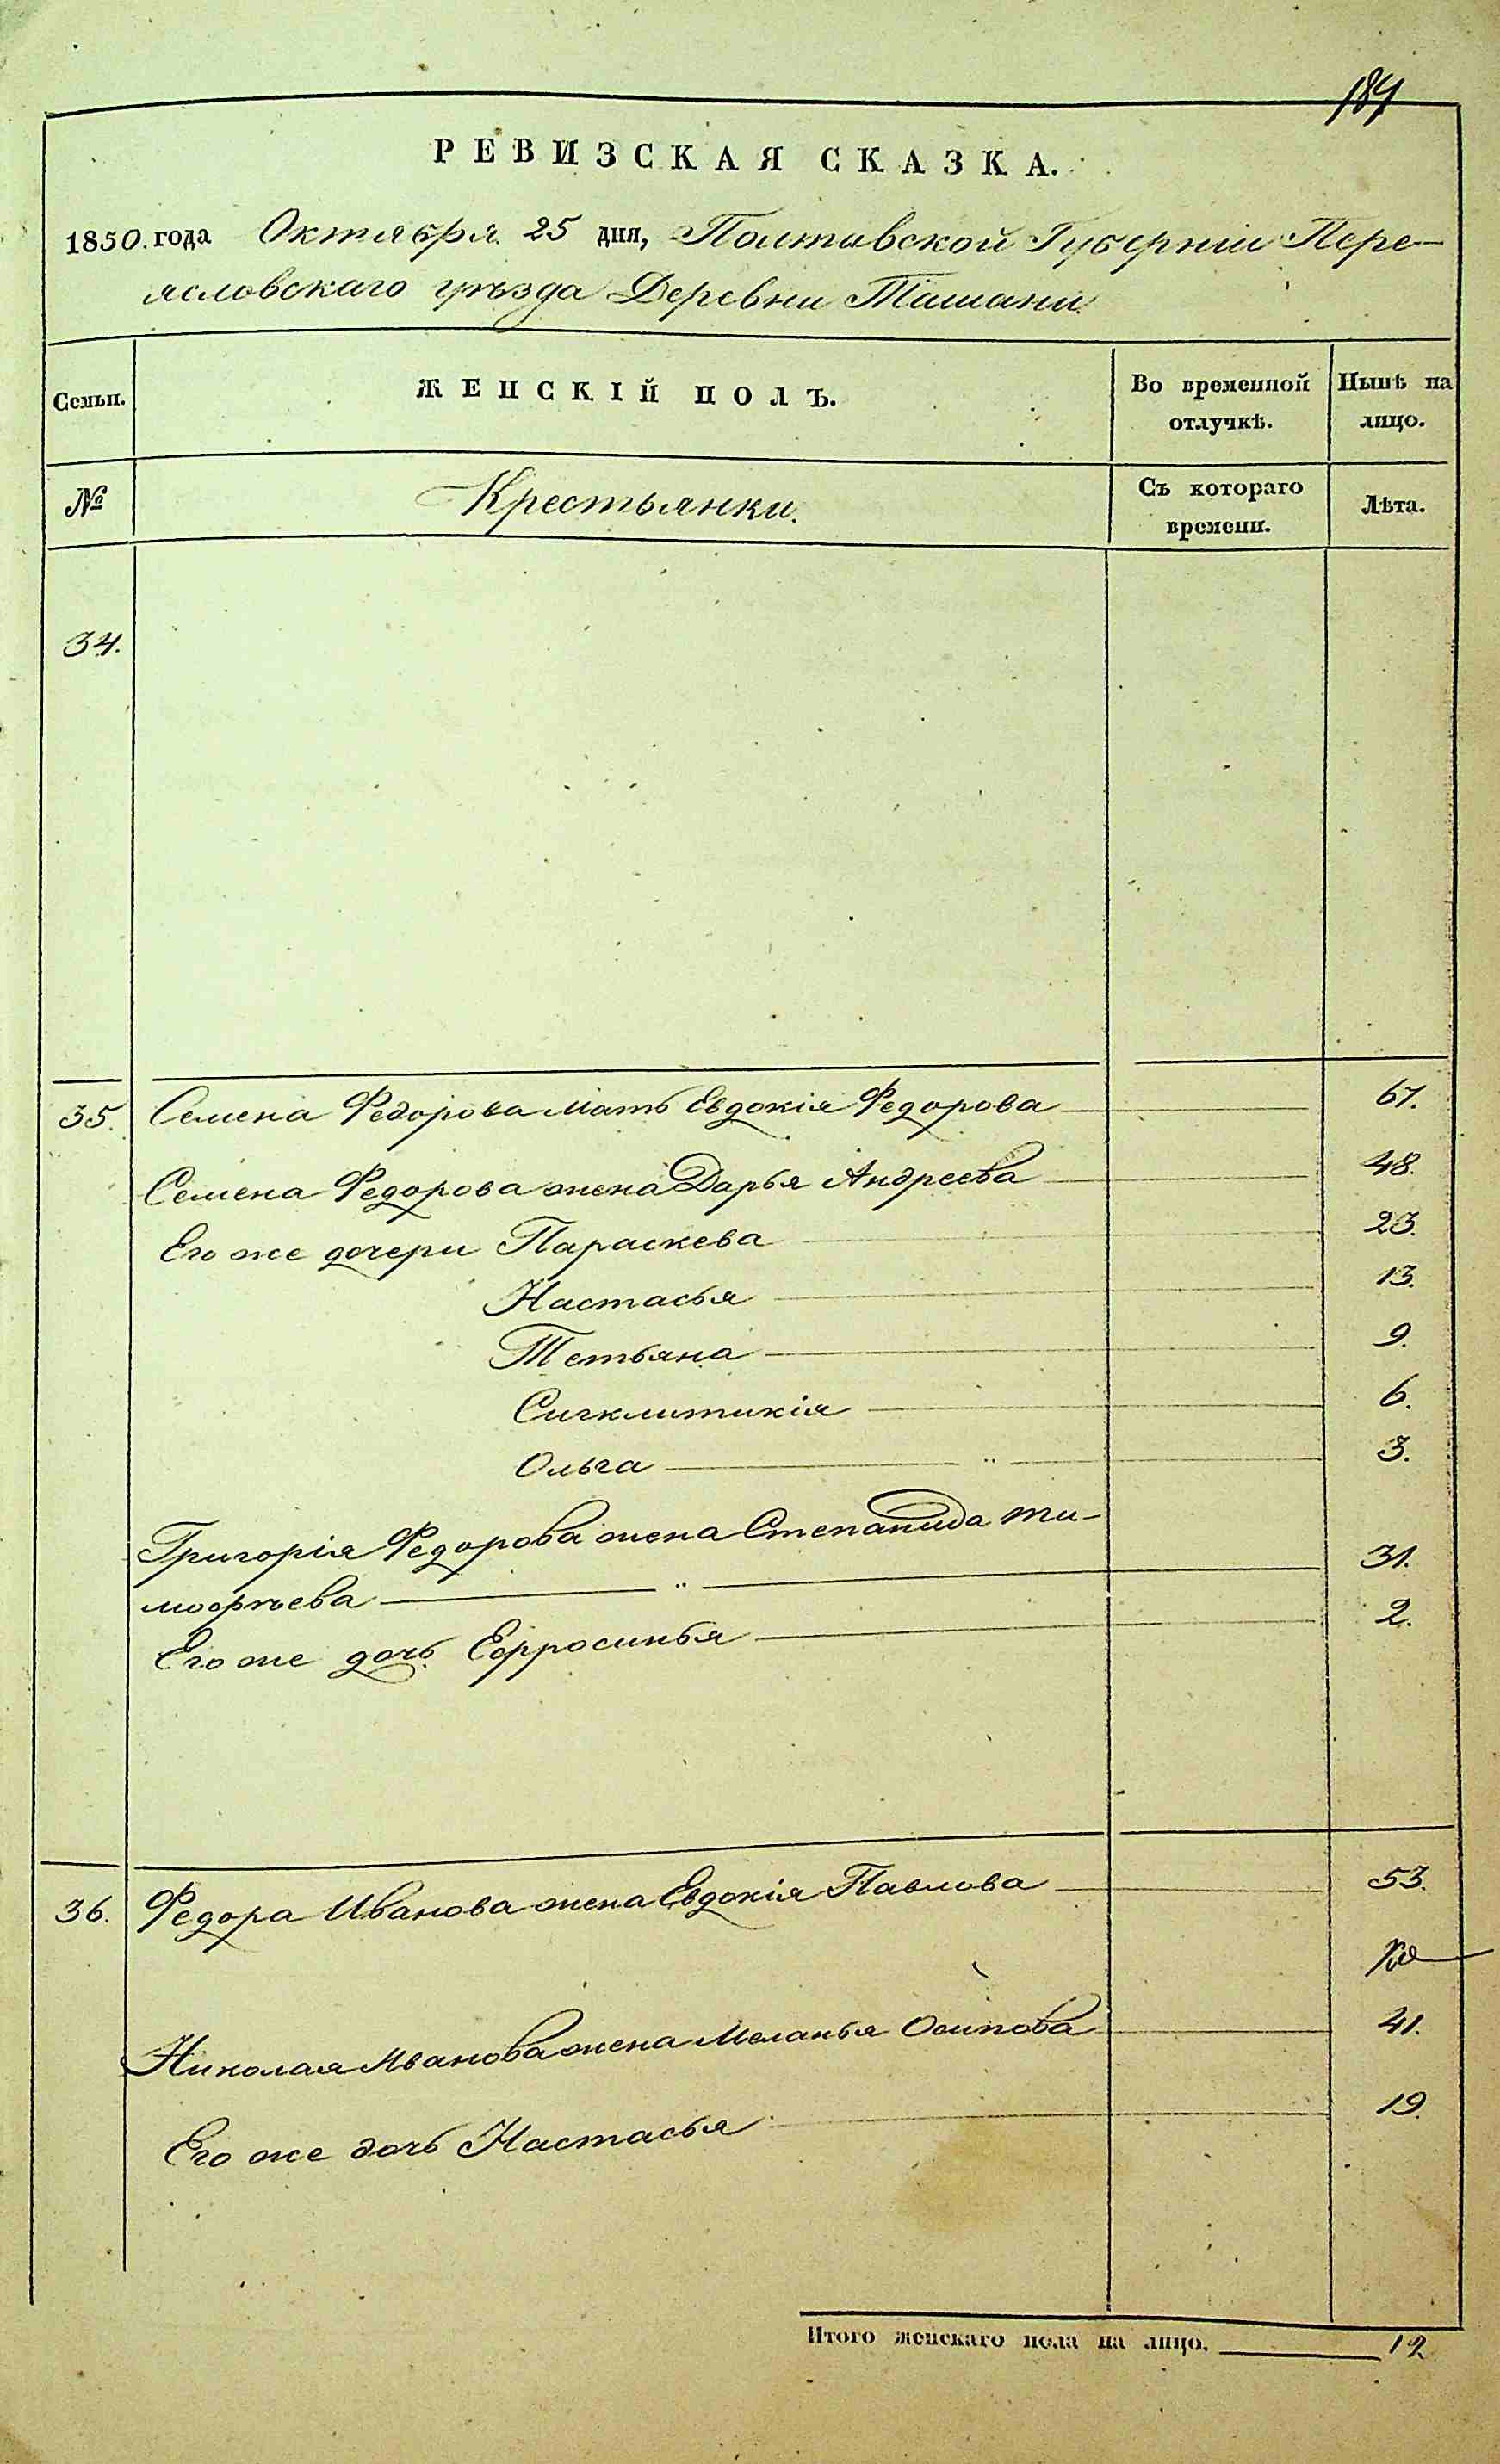 184
РЕВИЗСКАЯ СКАЗКА.
1850. года Октября 25 дня, Полтавской Губерніи Пере-
ясловскаго уѣзда Деревни Ташани
Семьи. ЖЕНСКІЙ ПОЛЪ. Во временной отлучкѣ. Нынѣ на лицо.
№ Крестьянки. Съ котораго времени. Лѣта.
34.
35. Семена Федорова мать Евдокія Федорова 67.
Семена Федорова жена Дарья Андреева 48.
Его же дочери Параскева 23.
Настасья 13.
Тетьяна 9.
Сигклитикія 6.
Ольга 3.
Григорія Федорова жена Степанида Ти-
мофѣева 31.
Его же дочь Ефросинья 2.
36. Федора Иванова жена Евдокія Павлова 53.
Николая Иванова жена Меланья Осипова 41.
Его же дочь Настасья 19.
Итого женскаго пола на лицо. 12